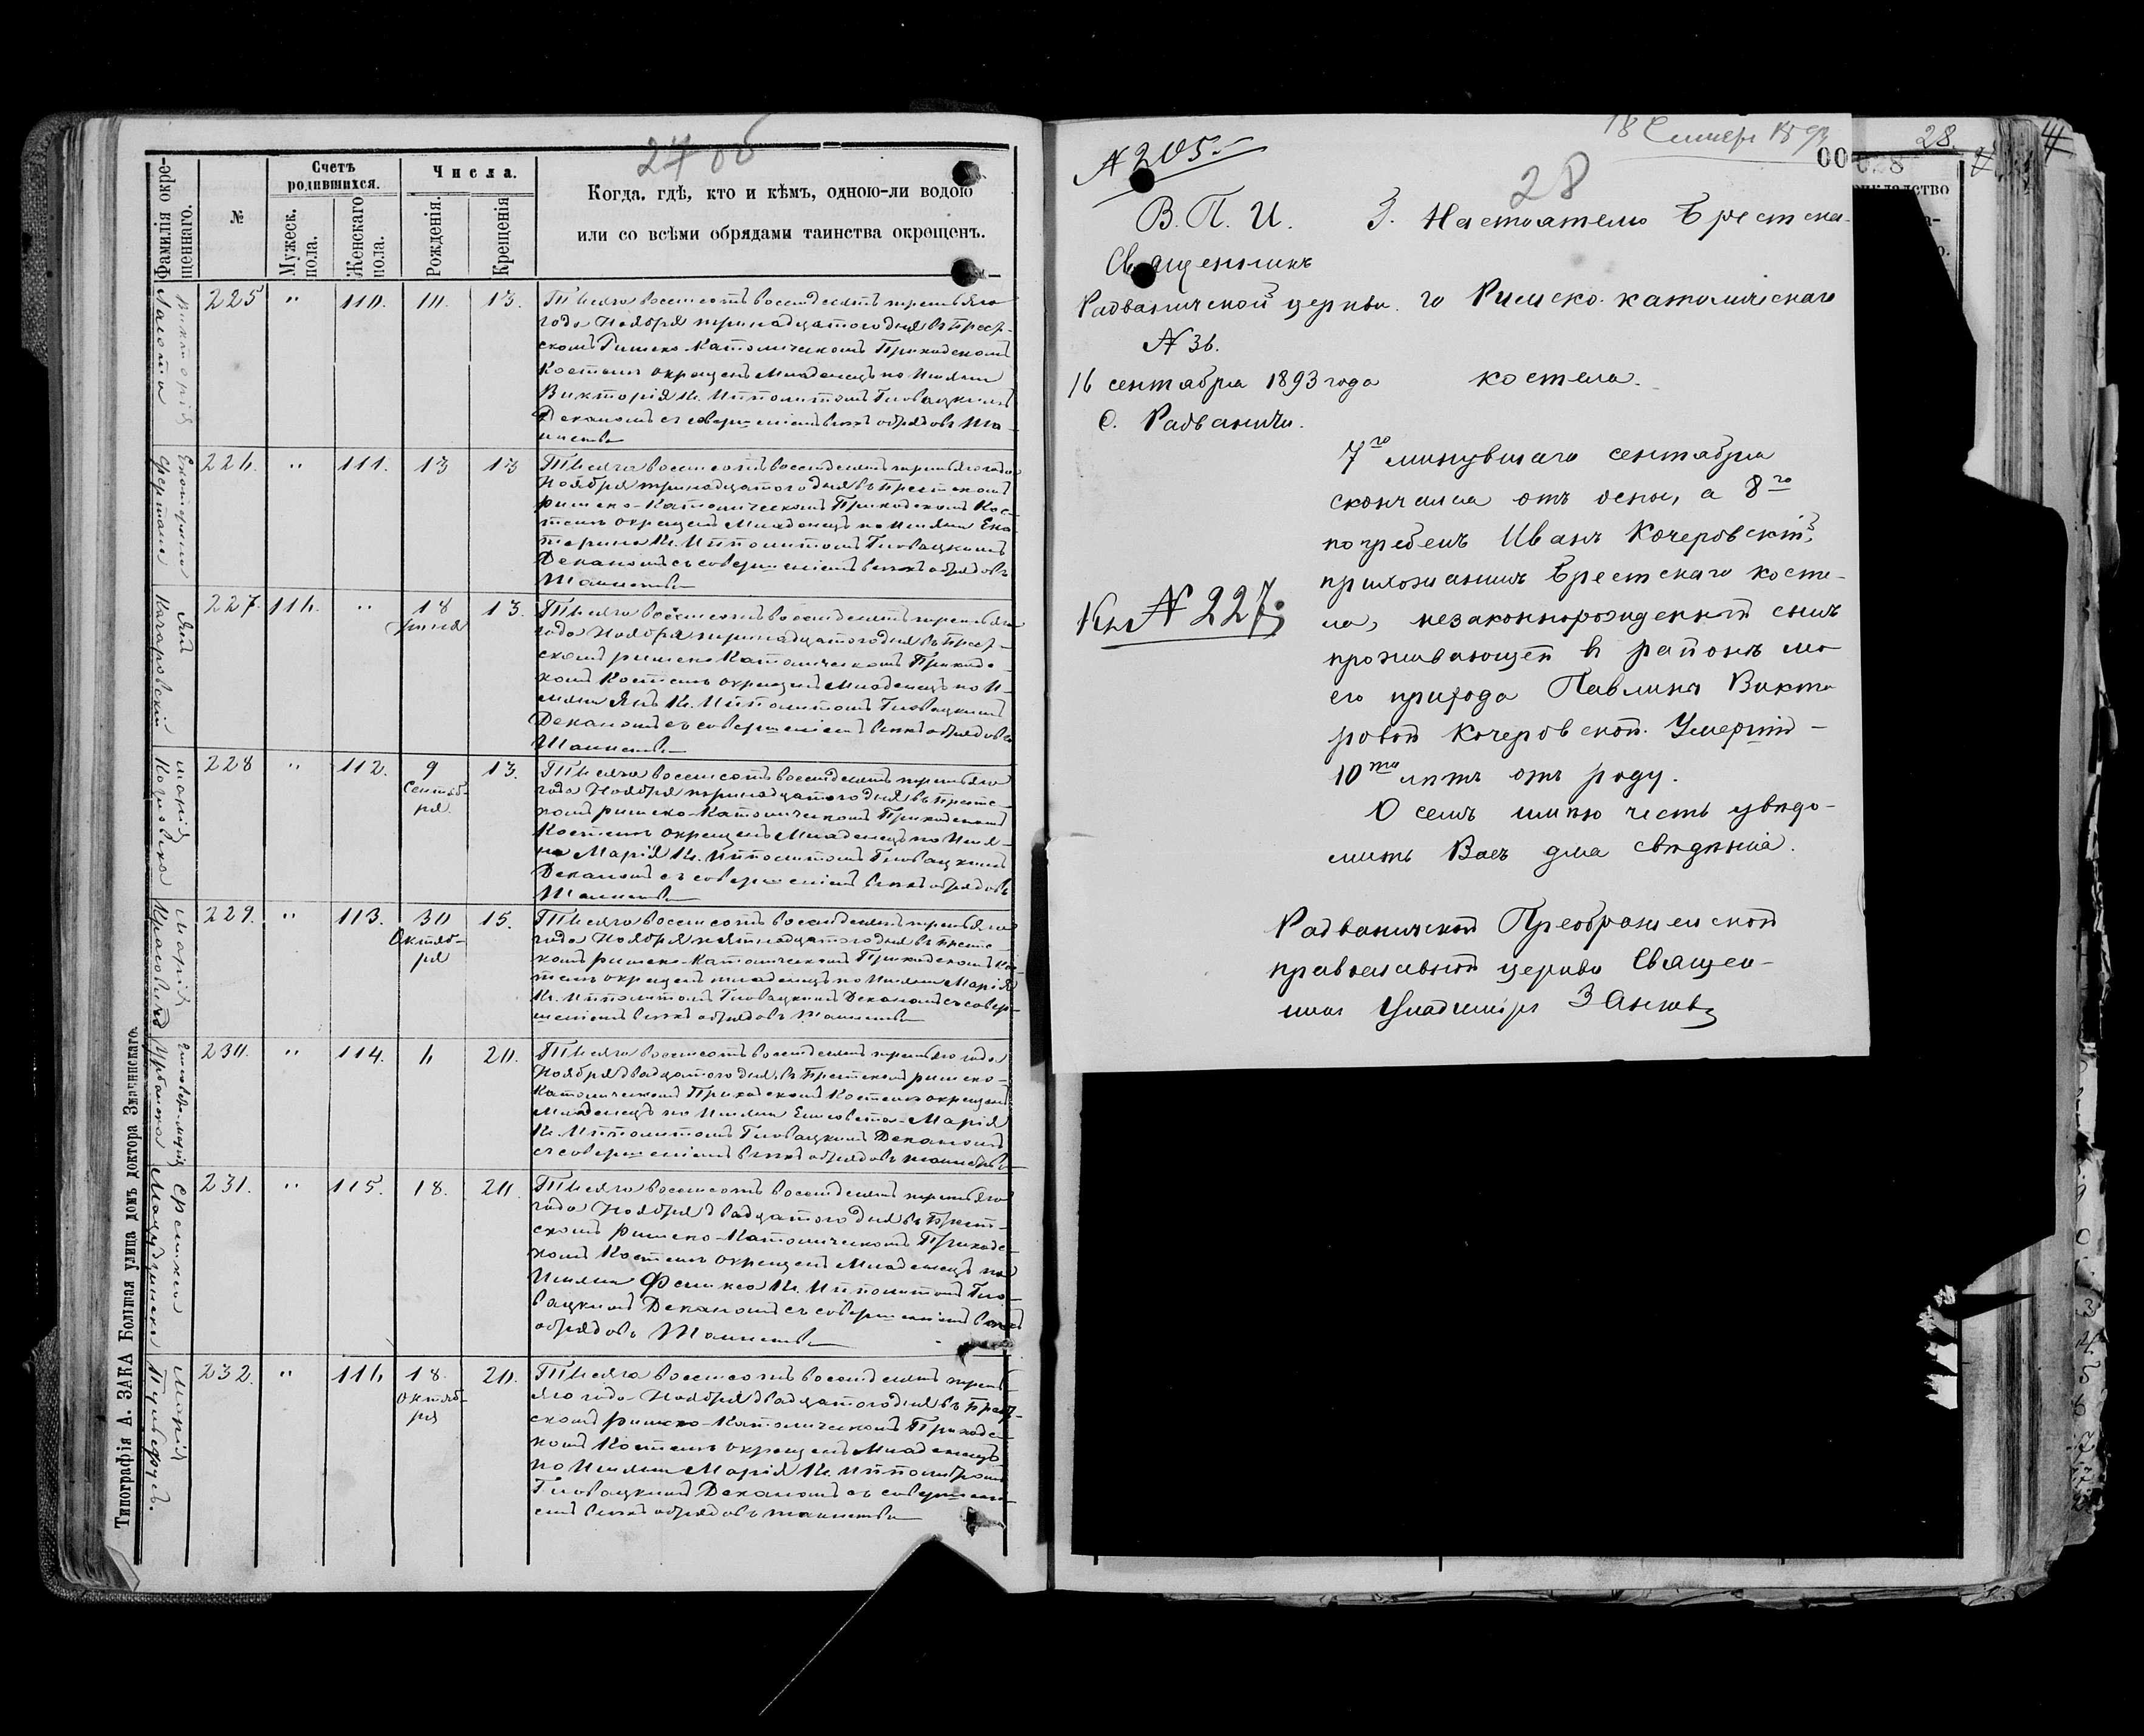 Типографія А. ЗАКА Болтая улица домъ доктора Знаинскаго.
Фамилія окре-
щеннаго.
№
Счетъ
родившихся.
Мужеск.
пола.
Женскаго
пола.
Числа.
Рожденія.
Крещенія
Когда, гдѣ, кто и кѣмъ, одною-ли водою
или со всѣми обрядами таинства окрещенъ.
Викторія
225 " 110. 10. 13.
Тысяча восемсотъ восемдесятъ третьяго
года Ноября тринадцатого дня въ Брест-
скомъ Римско-Католическомъ Приходскомъ
Костелѣ окрещенъ Младенецъ по Имени
Викторія Кс. Ипполитомъ Гловацкимъ
Деканомъ съ совершеніемъ всехъ обрядовъ Та-
инства
Екатерина
226. " 111. 13 13
Тысяча восемсотъ восемдесятъ третьяго года
Ноября тринадцатого дня въ Брестскомъ
римско-Католическомъ Приходскомъ Кос-
телѣ окрещенъ Младенецъ по Имени Ека-
терина Кс. Ипполитомъ Гловацкимъ
Деканомъ съ совершеніемъ всехъ обрядовъ
Таинства
Янъ
Качаровскій
227. 116. " 18 13.
Іюня
Тысяча восемсотъ восемдесятъ третьяго
года Ноября тринадцатого дня въ Брест-
скомъ римско Католическомъ Приход-
комъ Костелѣ окрещенъ Младенецъ по И-
мени Янъ Кс. Ипполитомъ Гловацкимъ
Деканомъ съ совершеніемъ всехъ обрядовъ
Таинства
Марія
228 " 112. 9 13.
Сентяб-
ря.
Тысяча восемсотъ восемдесятъ третьяго
года Ноября тринадцатого дня въ Брестс-
комъ римско-Католическомъ Приходскомъ
Костелѣ окрещенъ Младенецъ по Име-
ни Марія Кс. Ипполитомъ Гловацкимъ
Деканомъ съ совершеніемъ всехъ обрядовъ
Таинства
Марія
229. " 113. 30 15.
Октяб-
ря
Тысяча восемсотъ восемдесятъ третьяго
года Ноября пятнадцатого дня въ Брестс-
комъ римско-Католическомъ Приходскомъ Кос-
телѣ окрещенъ младенецъ по Имени Марія
Кс. Ипполитомъ Гловацкимъ Деканомъ съ совер-
шеніемъ всехъ обрядовъ Таинства
Елисавета-Марія
Урбанова
230. " 114. 6 20.
Тысяча восемсотъ восемдесятъ третьяго года
Ноября двадцатого дня въ Брестскомъ римско-
Католическомъ Приходскомъ Костелѣ окрещенъ
Младенецъ по Имени Елисавета-Марія
Кс. Ипполитомъ Гловацкимъ Деканомъ
съ совершеніемъ всехъ обрядовъ таинства
Феликса
231. " 115. 18. 20.
Тысяча восемсотъ восемдесятъ третьяго
года Ноября двадцатого дня въ Брест-
скомъ римско-Католическомъ Приходс-
комъ Костелѣ окрещенъ Младенецъ по
Имени Феликса Кс. Ипполитомъ Гло-
вацкимъ Деканомъ съ совершеніемъ всехъ
обрядовъ Таинства
Марія
232. " 116 18. 20.
Октяб-
ря
Тысяча восемсотъ восемдесятъ треть-
яго года Ноября двадцатого дня въ Брест-
скомъ римско-Католическомъ Приходс-
комъ Костелѣ окрещенъ Младенецъ
по Имени Марія Кс. Ипполитомъ
Гловацкимъ Деканомъ съ совершені-
емъ всехъ обрядовъ таинства
18 Сентября 1893
28.
№ 205
28
В. П. И.
Священникъ
Радваничской церкви.
№ 36.
16 сентября 1893 года
С. Радваничи.
Къ № 227.
Настоятелю Брестска-
го Римско-католическаго
костела.
7го минувшаго сентября
скончался отъ оспы, а 8го
погребенъ Иванъ Кочеровскій,
прихожанинъ Брестскаго косте-
ла, незаконнорожденный сынъ
проживающей въ районѣ мо
его прихода Павлины Викто
ровой Кочеровской. Умершій -
10ти лѣтъ отъ роду.
О семъ имѣю честь увѣдо-
мить Васъ для свѣдѣнія.
Радваничской Преображенской
православной церкви Священ-
никъ Владиміръ